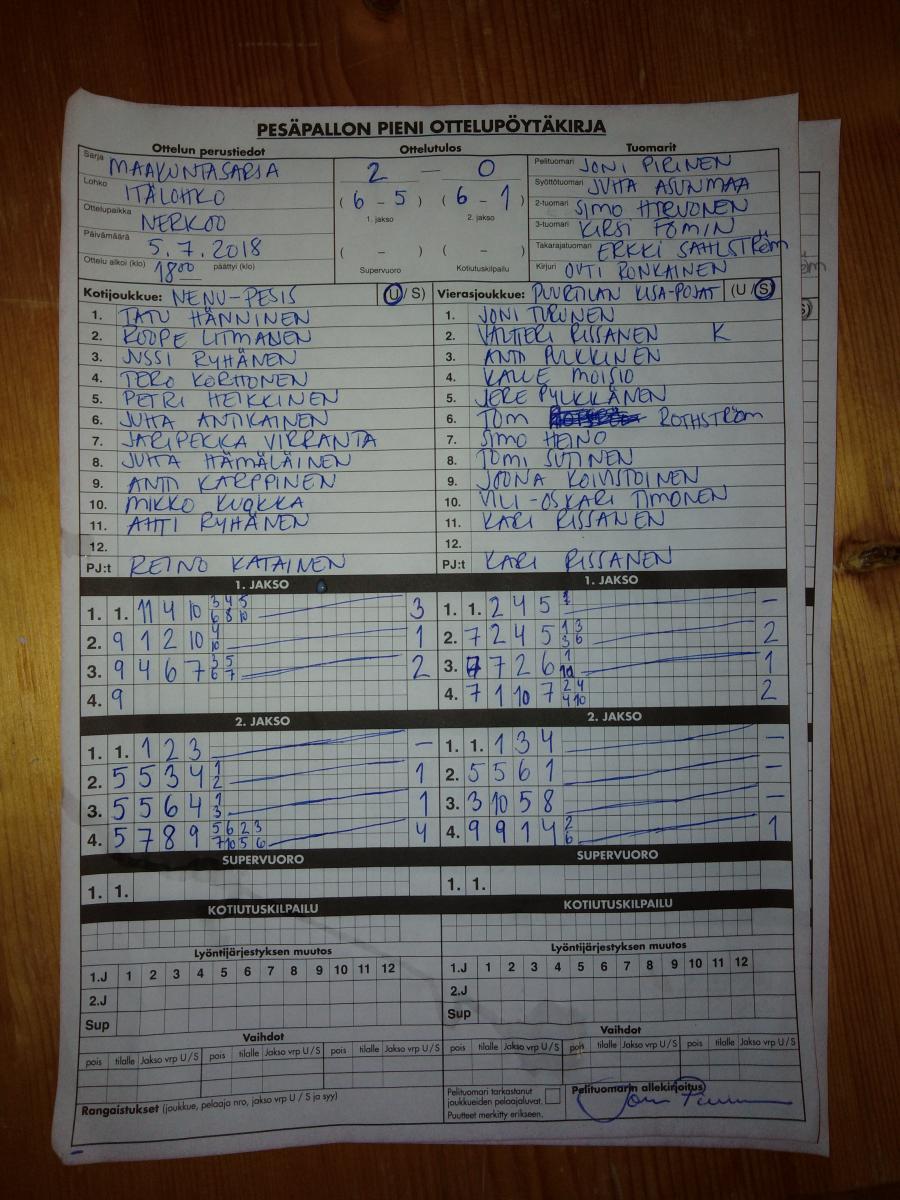 PESÄPALLON PIENI OTTELUPÖYTÄKIRJA
Ottelun perustiedot
Sarja MAAKUNTASARJA
Lohko ITÄLOHKO
Ottelupaikka NERKOO
Päivämäärä 5.7.2018
Ottelu alkoi (klo) 18⁰⁰ päättyi (klo)
Ottelutulos
2 — 0
( 6 - 5 ) ( 6 - 1 )
1. jakso 2. jakso
( - ) ( - )
Supervuoro Kotiutuskilpailu
Tuomarit
Pelituomari JONI PIRINEN
Syöttötuomari JUHA ASUNMAA
2-tuomari SIMO HIRVONEN
3-tuomari KIRSI FOMIN
Takarajatuomari ERKKI SAHLSTRÖM
Kirjuri OUTI RONKAINEN
Kotijoukkue: NENU-PESIS (U / S)
1. TATU HÄNNINEN
2. ROOPE LITMANEN
3. JUSSI RYHÄNEN
4. TERO KORHONEN
5. PETRI HEIKKINEN
6. JUHA ANTIKAINEN
7. JARIPEKKA VIRRANTA
8. JUHA HÄMÄLÄINEN
9. ANTTI KARPPINEN
10. MIKKO KUOKKA
11. AHTI RYHÄNEN
12.
PJ:t REINO KATAINEN
Vierasjoukkue: PUURTILAN KISA-POJAT (U / S)
1. JONI TURUNEN
2. VALTTERI RISSANEN K
3. ANTTI PULKKINEN
4. KALLE MOISIO
5. JERE PYLKKÄNEN
6. TOM ROTHSTRÖM
7. SIMO HEINO
8. TOMI SUTINEN
9. JOONA KOIVISTOINEN
10. VILI-OSKARI TIMONEN
11. KARI RISSANEN
12.
PJ:t KARI RISSANEN
1. JAKSO
1. 1. 11 4 10 3 4 5 3
6 8 10
2. 9 1 2 10 4 1
10
3. 9 4 6 7 3 5 2
6 7
4. 9
1. JAKSO
1. 1. 2 4 5 –
2. 7 2 4 5 1 3 2
3 6
3. 7 2 6 1 1
10
4. 7 1 10 7 2 4 2
4 10
2. JAKSO
1. 1. 1 2 3 –
2. 5 5 3 4 1 1
2
3. 5 5 6 4 1 1
3
4. 5 7 8 9 5 6 2 3 4
7 10 5 6
2. JAKSO
1. 1. 1 3 4 –
2. 5 5 6 1 –
3. 3 10 5 8 –
4. 9 9 1 4 2 1
6
SUPERVUORO
1. 1.
SUPERVUORO
1. 1.
KOTIUTUSKILPAILU
KOTIUTUSKILPAILU
Lyöntijärjestyksen muutos
1.J 1 2 3 4 5 6 7 8 9 10 11 12
2.J
Sup
Lyöntijärjestyksen muutos
1.J 1 2 3 4 5 6 7 8 9 10 11 12
2.J
Sup
Vaihdot
pois tilalle Jakso vrp U / S pois tilalle Jakso vrp U / S pois tilalle Jakso vrp U / S
Vaihdot
pois tilalle Jakso vrp U / S pois tilalle Jakso vrp U / S pois tilalle Jakso vrp U / S
Rangaistukset (joukkue, pelaaja nro, jakso vrp U / S ja syy)
Pelituomari tarkastanut
joukkueiden pelaajaluvat.
Puutteet merkitty erikseen.
Pelituomarin allekirjoitus)